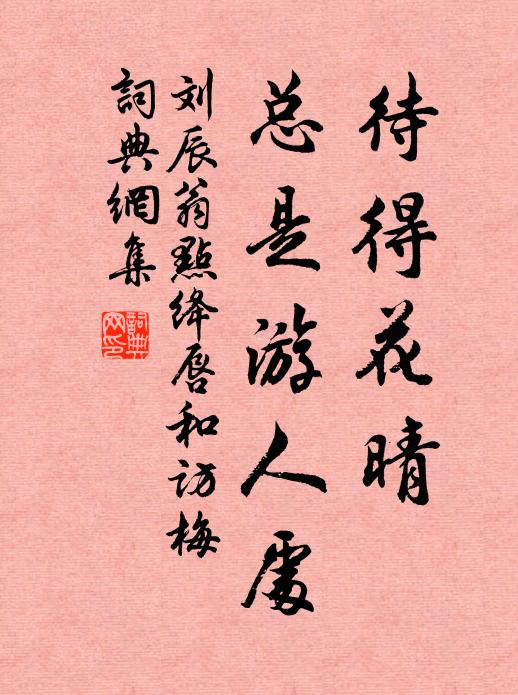 待得花晴
总是游人處
刘辰翁點绛唇和访梅
詞典網集
詞典網印